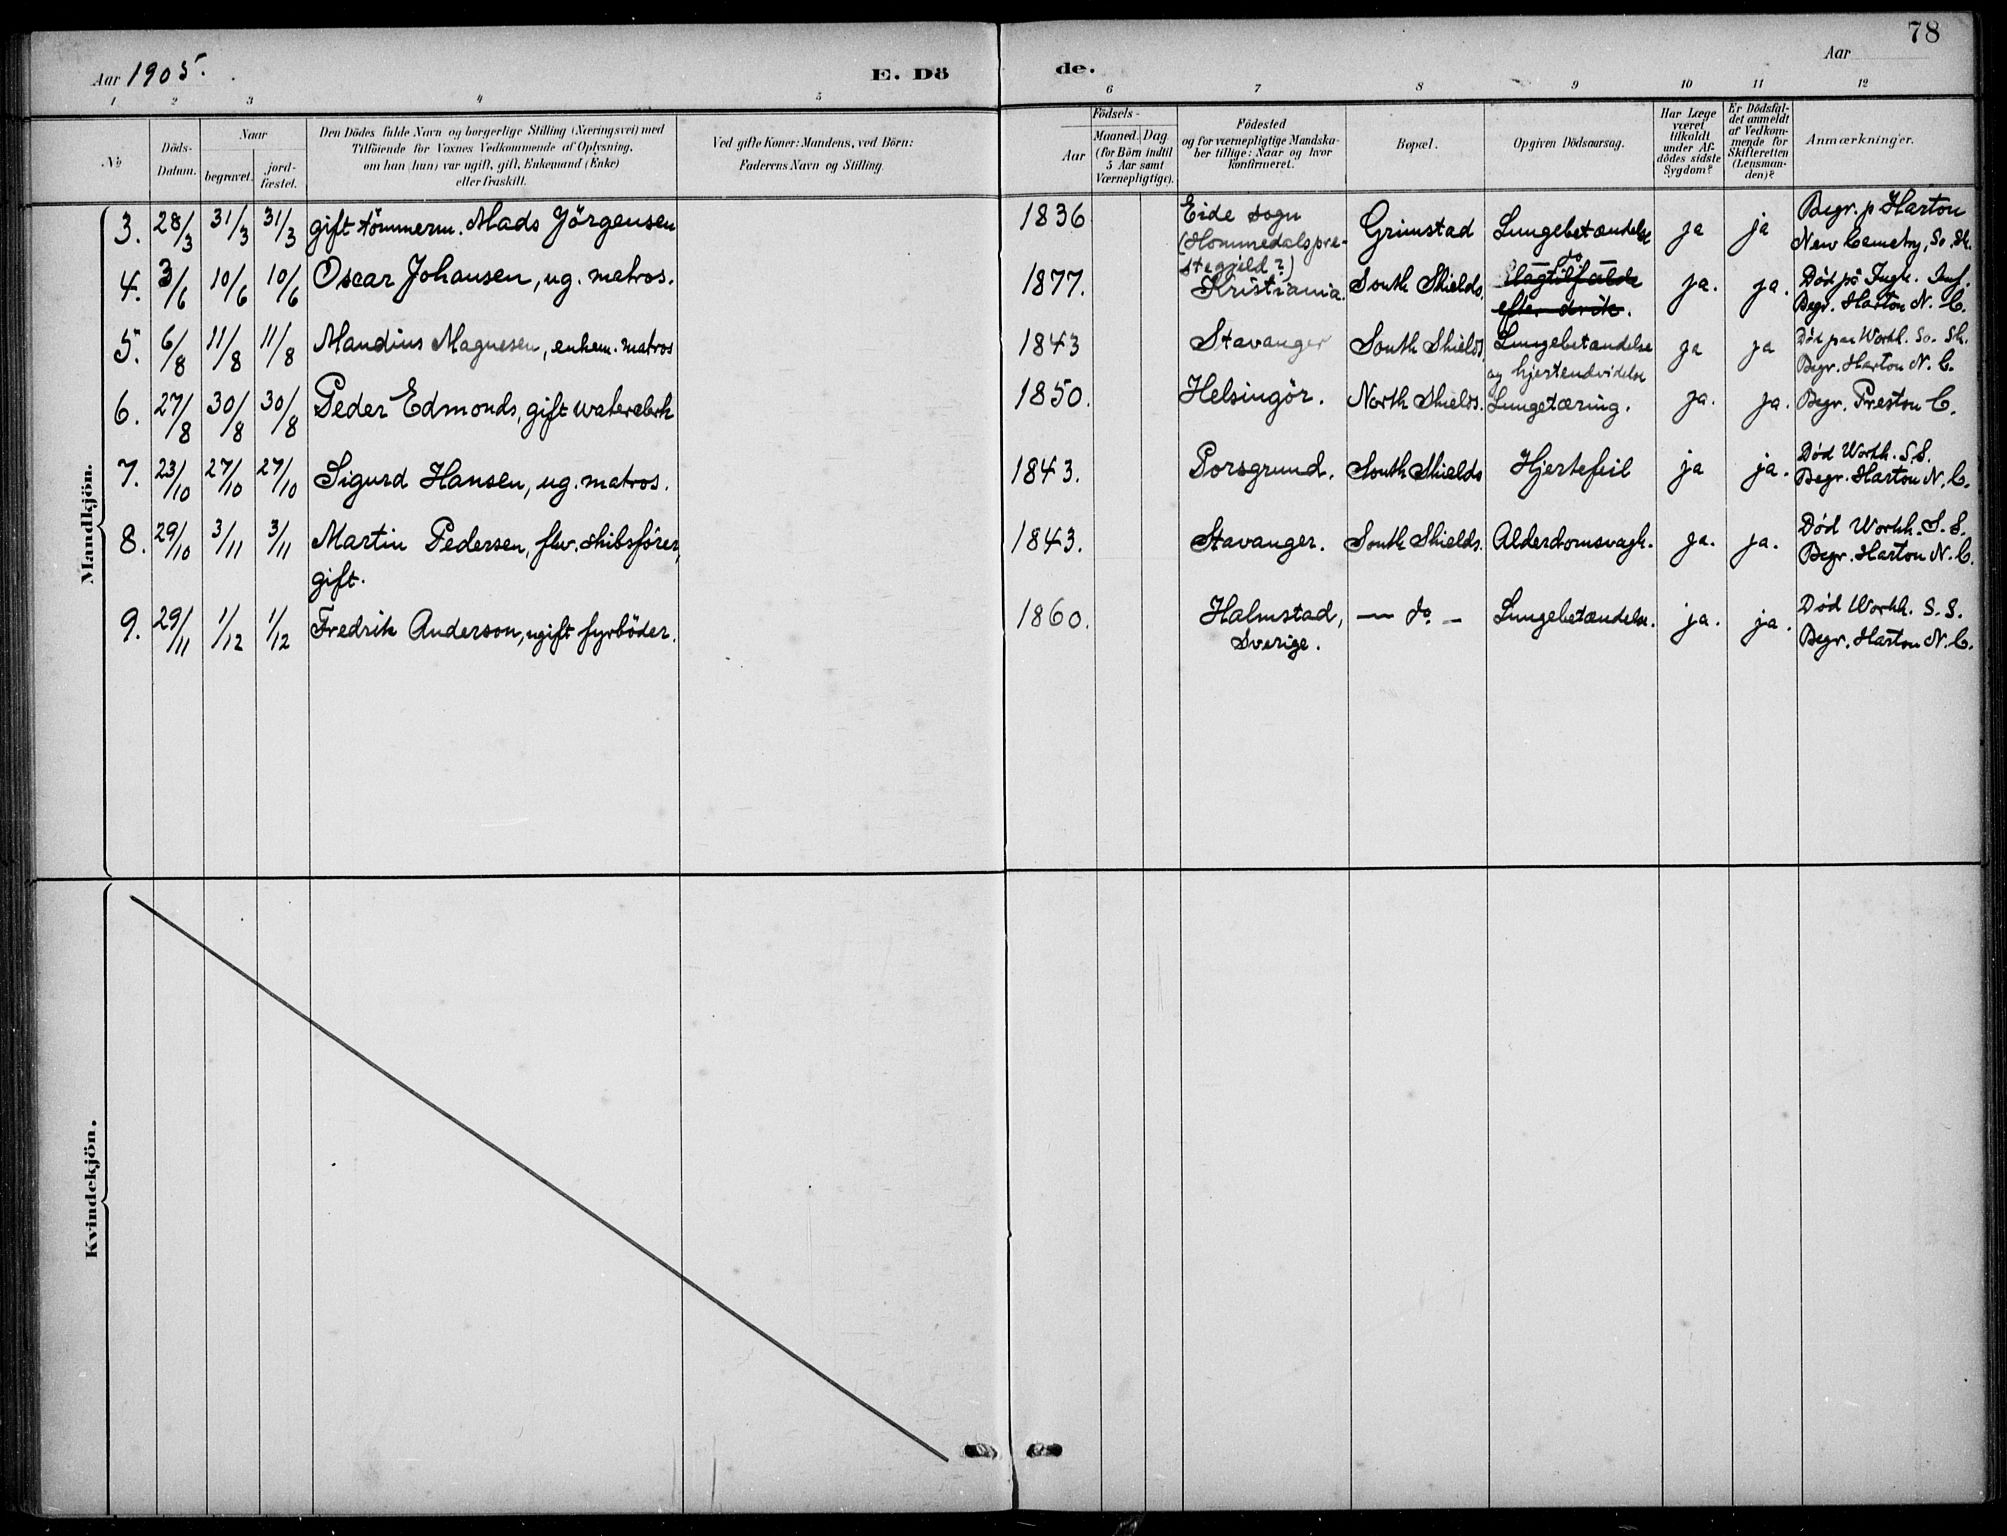 78
Aar 1905.
E. Dö de.
Aar
1 2 3 4 5 6 7 8 9 10 11 12
No
Döds-
Datum.
Naar
begravet.
jord-
fæstet.
Den Dödes fulde Navn og borgerlige Stilling (Næringsvei) med
Tilföiende for Voxnes Vedkommende af Oplysning,
om han (hun) var ugift, gift, Enkemand (Enke)
eller fraskilt.
Ved gifte Koner: Mandens, ved Börn:
Faderens Navn og Stilling.
Födsels-
Aar
Maaned. Dag
(for Börn indtil
5 Aar samt
Værnepligtige).
Födested
og for værnepligtige Mandska-
ber tillige: Naar og hvor
konfirmeret.
Bopæl.
Opgiven Dödsaarsag.
Har Læge
været
tilkaldt
under Af-
dödes sidste
Sygdom?
Er Dödsfal-
det anmeldt
af Vedkom-
mende for
Skifteretten
(Lensman-
den)?
Anmærkninger.
Mandkjön.
3. 28/3 31/3 31/3 gift tömmerm. Mads Jörgensen 1836 Eide sogn Grimstad Lungebetændelse ja ja Begr. p Harton
(Hommedals præ- New Cemetry, So. Sh.
stegjeld?)
4. 3/6 10/6 10/6 Oscar Johansen, ug. matros. 1877. Kristiania. South Shields. Slagtilfælde ja. ja. Død på Ingh. Inf.
efter drik. Begr. Harton N. C.
5. 6/8 11/8 11/8 Mandius Magnesen, enkem. matros 1843 Stavanger South Shields. Lungebetændelse ja ja Död paa Workh. So. Sh.
og hjerteudvidelse Begr. Harton N. C.
6. 27/8 30/8 30/8 Peder Edmonds, gift waterclerk 1850. Helsingör. North Shields. Lungetæring. ja. ja. Begr. Preston C.
7. 23/10 27/10 27/10 Sigurd Hansen, ug. matros. 1843. Porsgrund. South Shields Hjertefeil ja ja. Død Workh. S.S.
Begr. Harton N. C.
8. 29/10 3/11 3/11 Martin Pedersen, fhv. skibsfører, 1843. Stavanger. South Shields. Alderdomsvagh. ja. ja. Død Workh. S. S.
gift. Begr. Harton N. C.
9. 29/11 1/12 1/12 Fredrik Anderson, ugift fyrböder. 1860. Halmstad, — do. — Lungebetændelse. ja. ja. Død Workh. S. S.
Sverige. Begr. Harton N. C.
Kvindekjön.